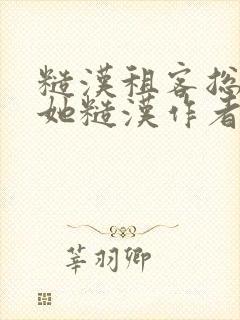 糙漢租客捴
她糙漢作者
莘羽卿